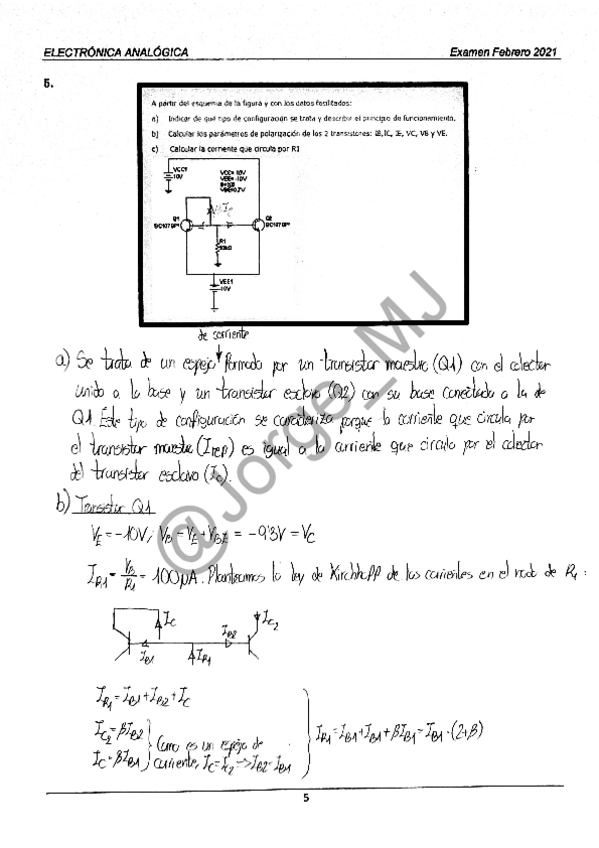 ELECTRÓNICA ANALÓGICA
Examen Febrero 2021
5.
A partir del esquema de la figura y con los datos facilitados:
a) Indicar de qué tipo de configuración se trata y describir el principio de funcionamiento.
b) Calcular los parámetros de polarización de los 2 transistores: IB, IC, IE, VC, VB y VE.
c) Calcular la corriente que circula por R1
VCC1
10V
VCC= 10V
VEE= -10V
Q1
Q2
R1
VEE1
-10V
de corriente
a) Se trata de un espejo ↓ formado por un transistor maestro (Q1) con el colector
unido a la base y un transistor esclavo (Q2) con su base conectada a la de
Q1. Este tipo de configuración se caracteriza porque la corriente que circula por
el transistor maestro (Iref) es igual a la corriente que circula por el colector
del transistor esclavo (Ic).
b) Transistor Q1
VE = -10V; VB = VE + VBE = -9'3V = VC
IR1 = VB/R1 = 100μA. Planteamos la ley de Kirchhoff de las corrientes en el nodo de R1:
IC
IB2
IC2
IB1
IR1
IR1 = IB1 + IB2 + IC
IC2 = βIB2
IC = βIB1
Como es un espejo de
corriente, IC = IC2 -> IB2 = IB1
IR1 = IB1 + IB1 + βIB1 = IB1 · (2+β)
5
@Jorge_MJ